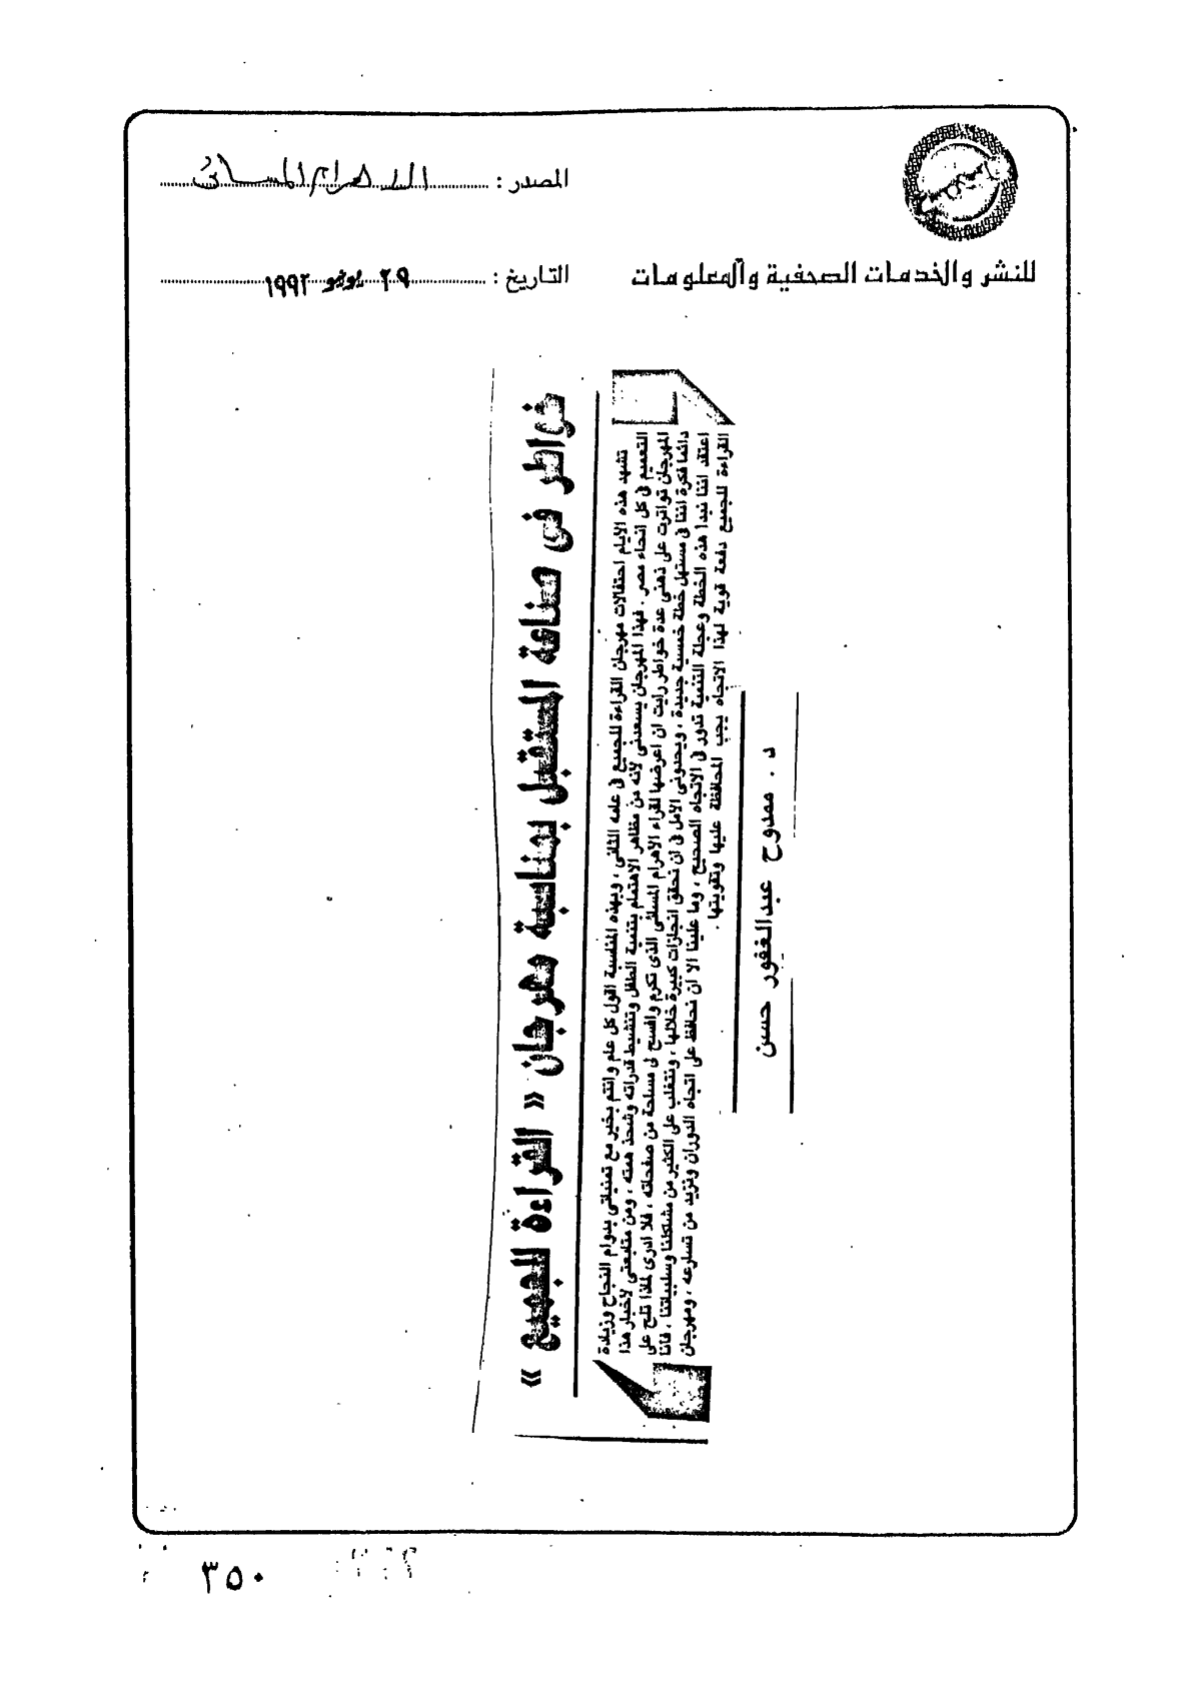 المصدر : الأهرام المسائى
للنشر والخدمات الصحفية والمعلومات
التاريخ : ٢٩ يونيو ١٩٩٢
خواطر فى صناعة المستقبل بمناسبة مهرجان « القراءة للجميع »
تشهد هذه الايام احتفالات مهرجان القراءة للجميع فى عامه الثانى ، وبهذه المناسبة اقول كل عام وانتم بخير مع تمنياتى بدوام النجاح وزيادة
التعميم فى كل انحاء مصر . فهذا المهرجان يسعدنى لأنه من مظاهر الاهتمام بتنمية الطفل وتنشيط قدراته وشحذ همته ، ومن متابعتى لأخبار هذا
المهرجان تواترت على ذهنى عدة خواطر رايت ان اعرضها لقراء الاهرام المسائى الذى تكرم وافسح لى مساحة من صفحاته ، فلا ادرى لماذا تلح على
دائما فكرة اننا فى مستهل خطة خمسية جديدة ، ويحدونى الأمل فى ان نحقق انجازات كبيرة خلالها ، ونتغلب على الكثير من مشاكلنا وسلبياتنا ، فانا
اعتقد اننا نبدا هذه الخطة وعجلة التنمية تدور فى الاتجاه الصحيح ، وما علينا الا ان نحافظ على اتجاه الدوران ونزيد من تسارعه ، ومهرجان
القراءة للجميع دفعة قوية لهذا الاتجاه يجب المحافظة عليها وتقويتها .
د . ممدوح عبدالغفور حسن
٣٥٠